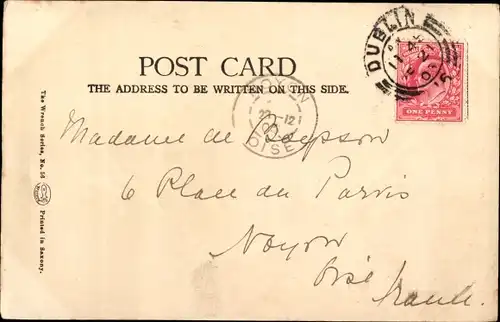 POST CARD
THE ADDRESS TO BE WRITTEN ON THIS SIDE.
DUBLIN
ONE PENNY
NOYON
OISE
Madame de
6 Place du Parvis
Noyon
Oise
France.
The Wrench Series, No. 56
Printed in Saxony.